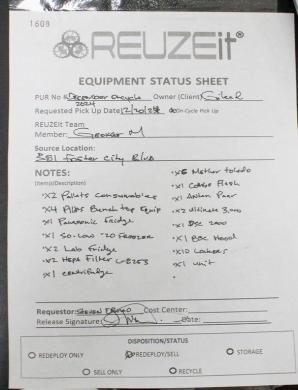 1608
REUZEit®
EQUIPMENT STATUS SHEET
PUR No # December oncycle 2024 Owner (Client) Gilead
Requested Pick Up Date 12/20/24 On-Cycle Pick Up
REUZEit Team
Member: George M
Source Location:
381 Foster City Blvd
NOTES:
(Item(s)Description)
x2 Pallets Consumables
x4 Pallets Bench top Equip
x1 Panasonic Fridge
x1 So-Low -20 Freezer
x2 Lab Fridge
x2 Hepa Filter
x1 centrifuge
x5 Mettler toledo
x1 Flash
x1 Anton Paar
x2 Ultimate 3,000
x1 DSC 2000
x1 BSC Hood
x10 Lockers
x1 unit
Requestor: Steven Cost Center:
Release Signature: Date:
DISPOSITION/STATUS
REDEPLOY ONLY REDEPLOY/SELL STORAGE
SELL ONLY RECYCLE